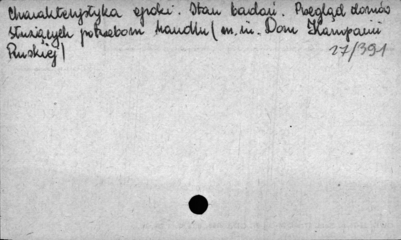 Charakterystyka epoki. Stan badań. Przegląd domów
służących potrzebom handlu (m.in. Dom Kampanii
Ruskiej)
27/391